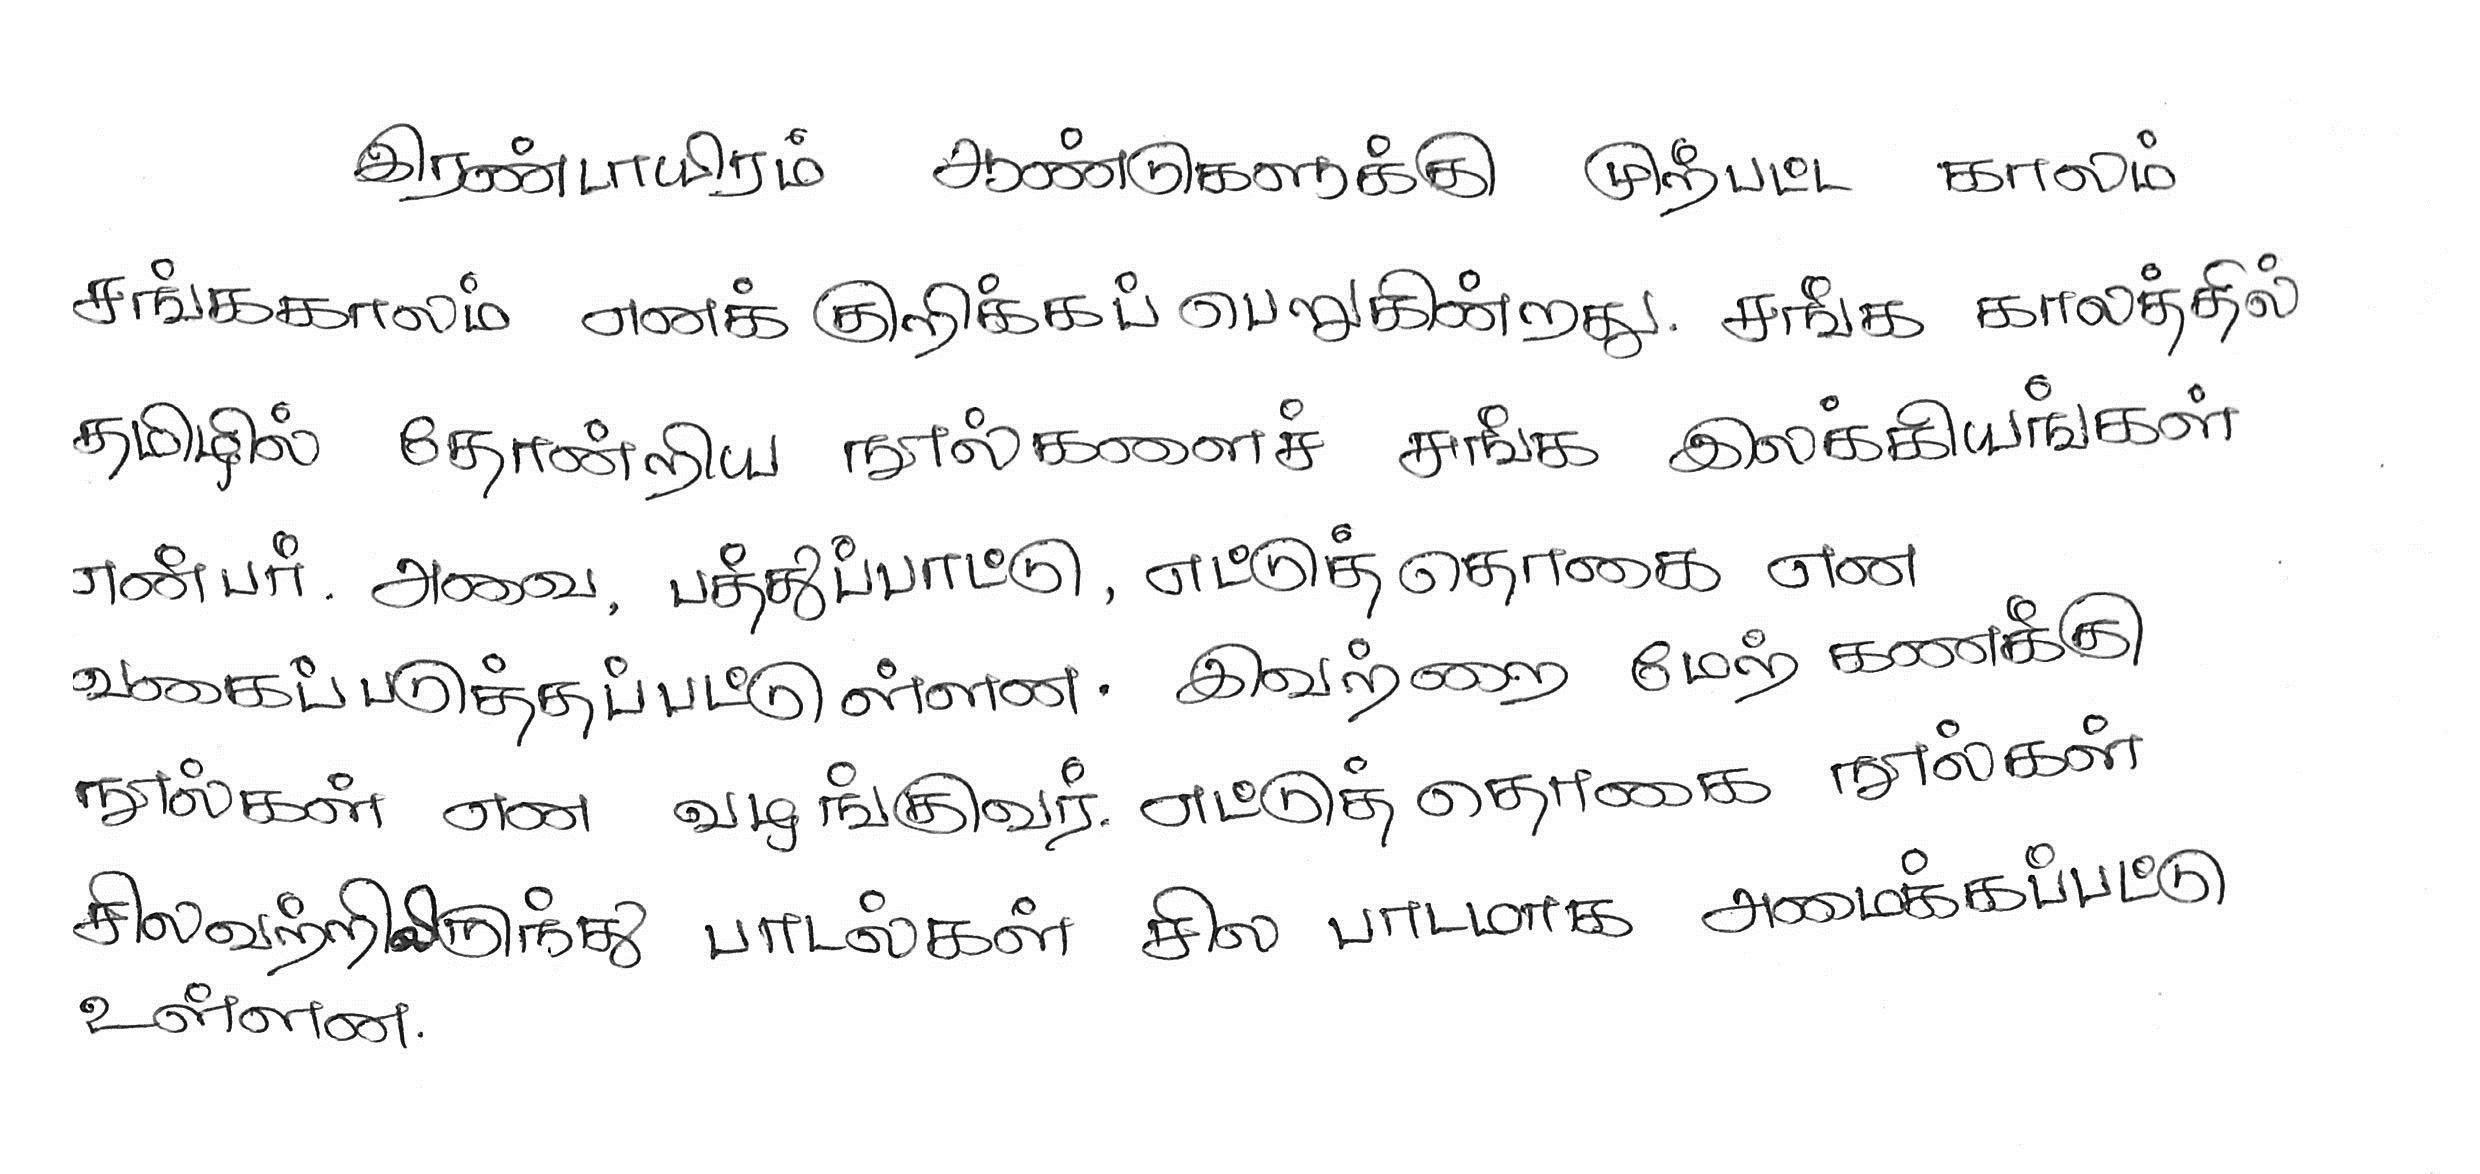 இரண்டாயிரம் ஆண்டுகளுக்கு முற்பட்ட காலம்
சங்ககாலம் எனக் குறிக்கப் பெறுகின்றது. சங்க காலத்தில்
தமிழில் தோன்றிய நூல்களைச் சங்க இலக்கியங்கள்
என்பர். அவை, பத்துப்பாட்டு, எட்டுத் தொகை என
வகைப்படுத்தப்பட்டுள்ளன. இவற்றை மேற் கணக்கு
நூல்கள் என வழங்குவர். எட்டுத் தொகை நூல்கள்
சிலவற்றிலிருந்து பாடல்கள் சில பாடமாக அமைக்கப்பட்டு
உள்ளன.